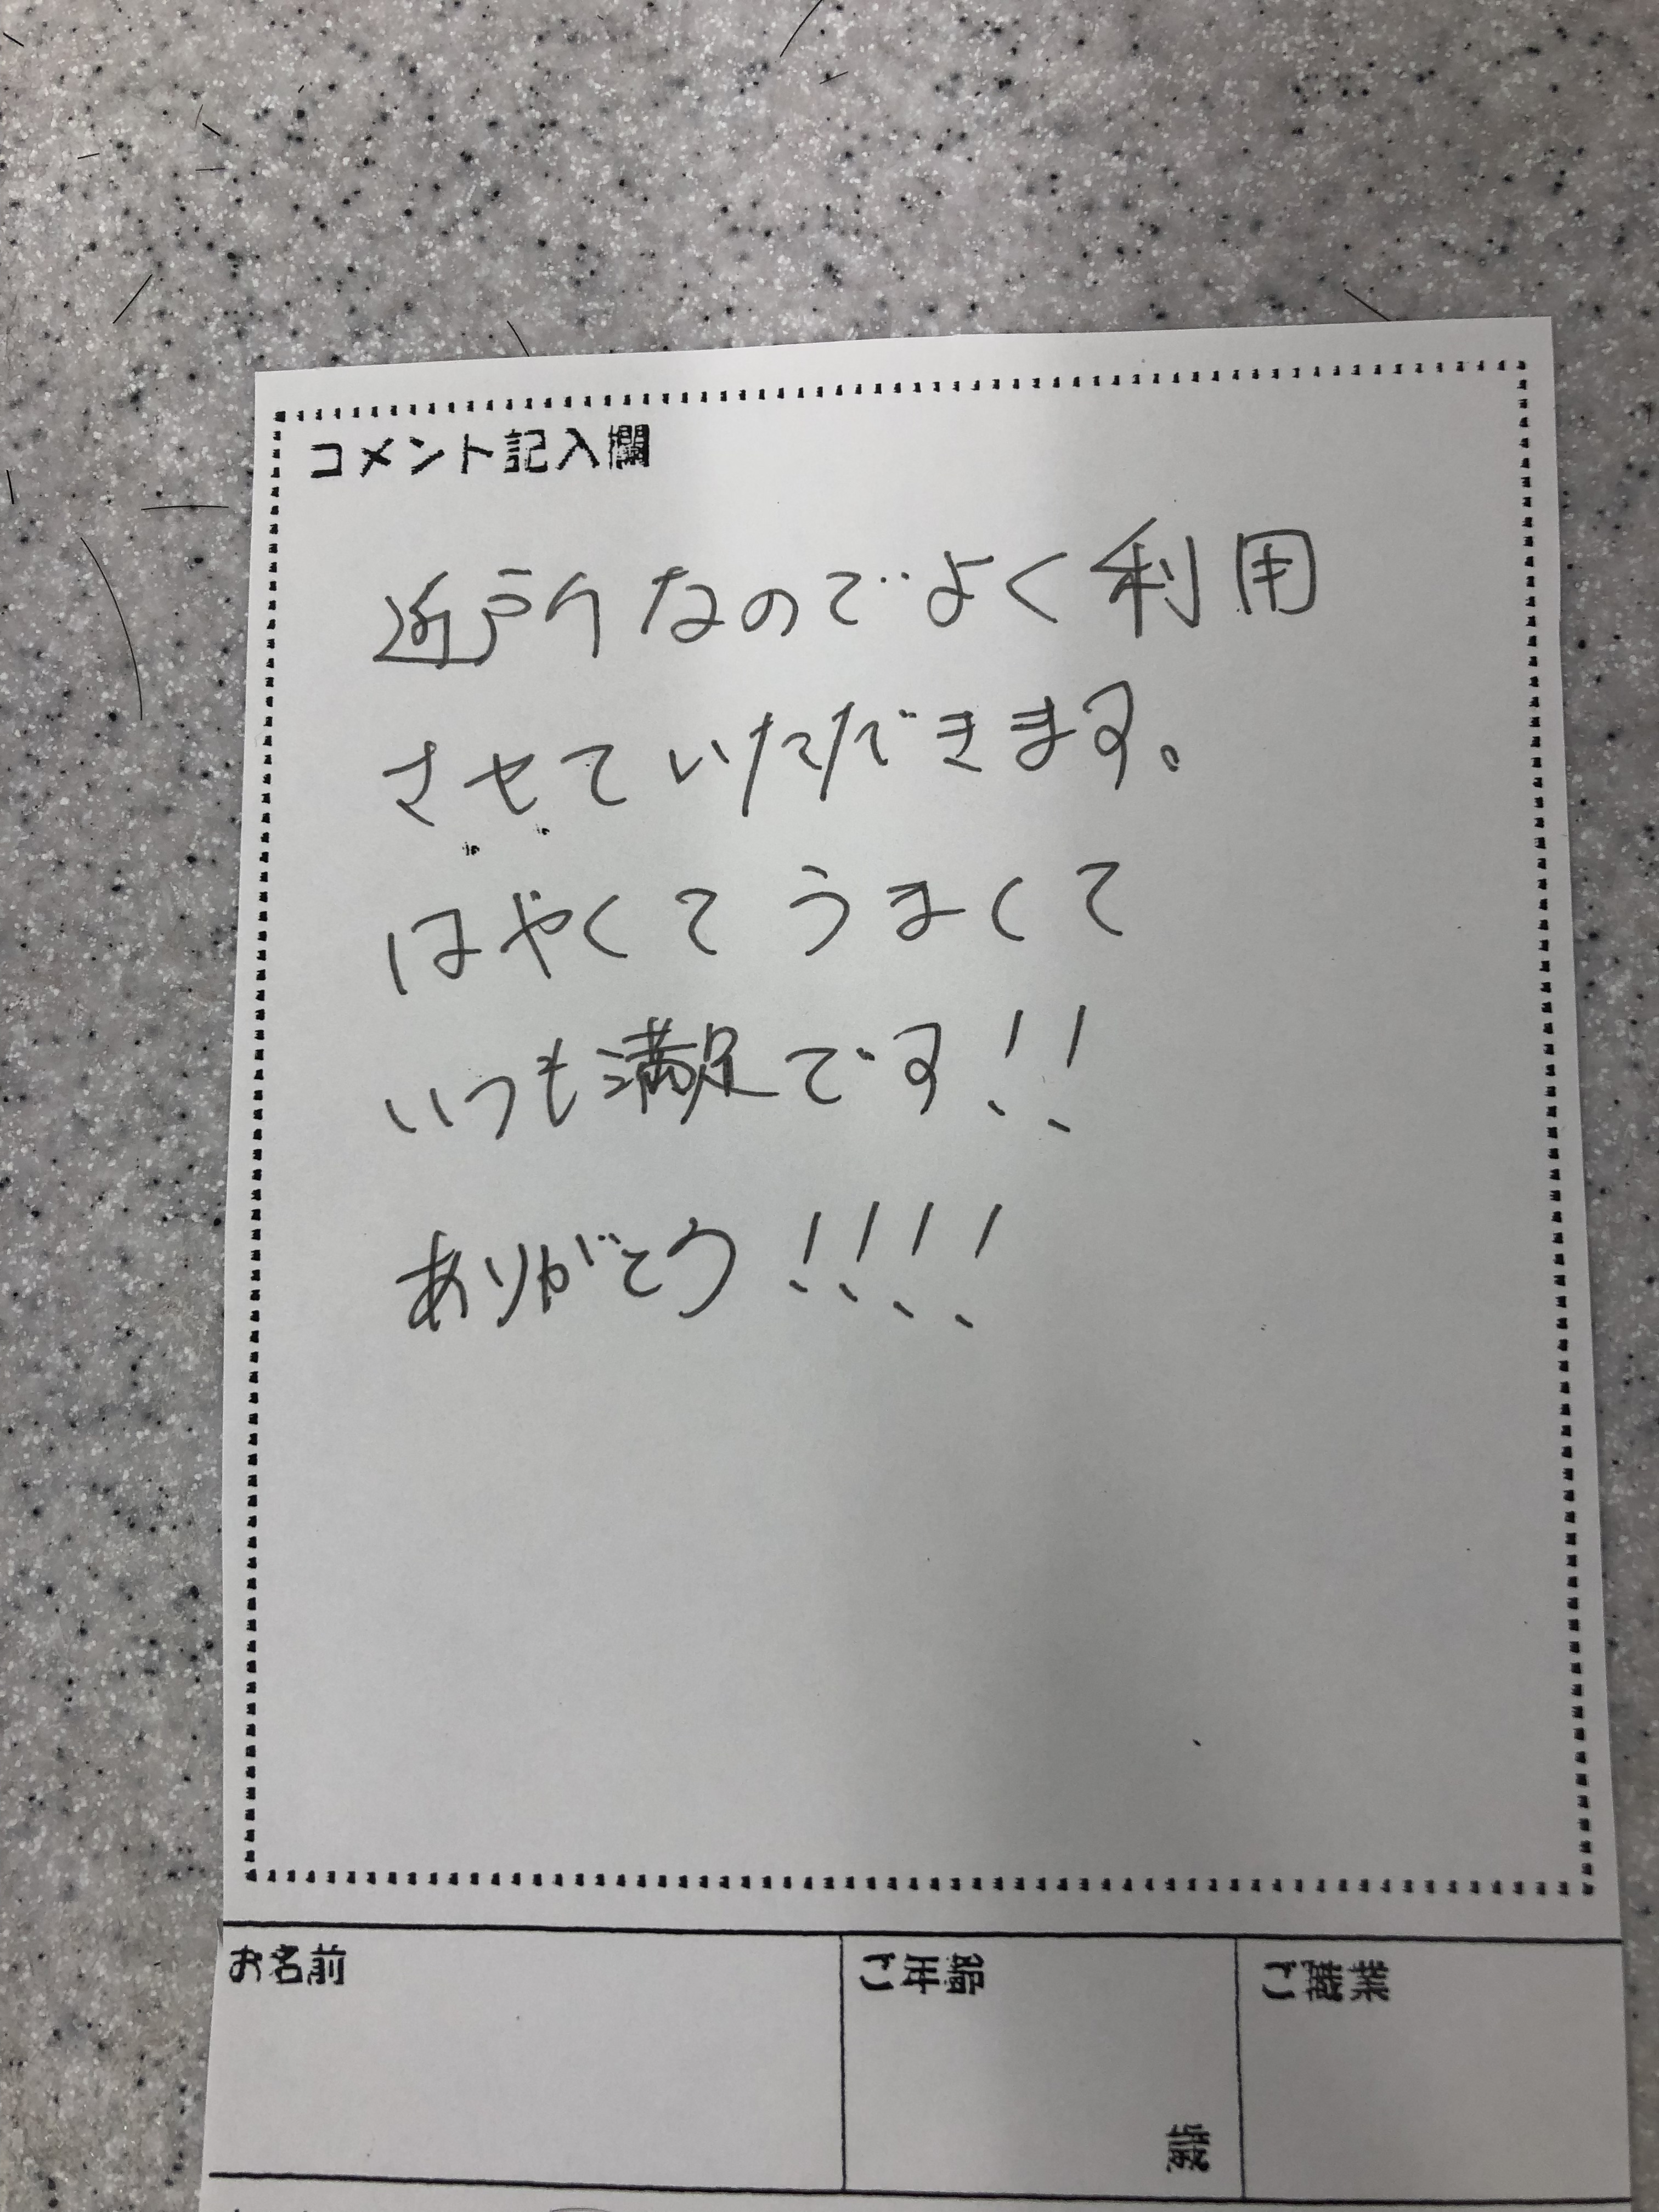 コメント記入欄
近所なのでよく利用
させていただきます。
はやくてうまくて
いつも満足です!!
ありがとう!!!!
お名前 ご年齢 ご職業
歳